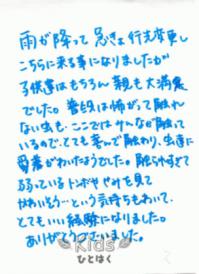 雨が降って急きょ行き先変更し
こちらに来る事になりましたが
子供達はもちろん親も大満足
でした。普段は怖がって触れ
ない虫も、ここではみんなが触って
いるので、とても喜んで触れわり、虫達に
愛着がわいたようでした。触られすぎて
弱っているトンボやセミを見て
かわいそう…という気持ちもわいて、
とてもいい経験になりました。
ありがとうございました。
Kids
ひとはく